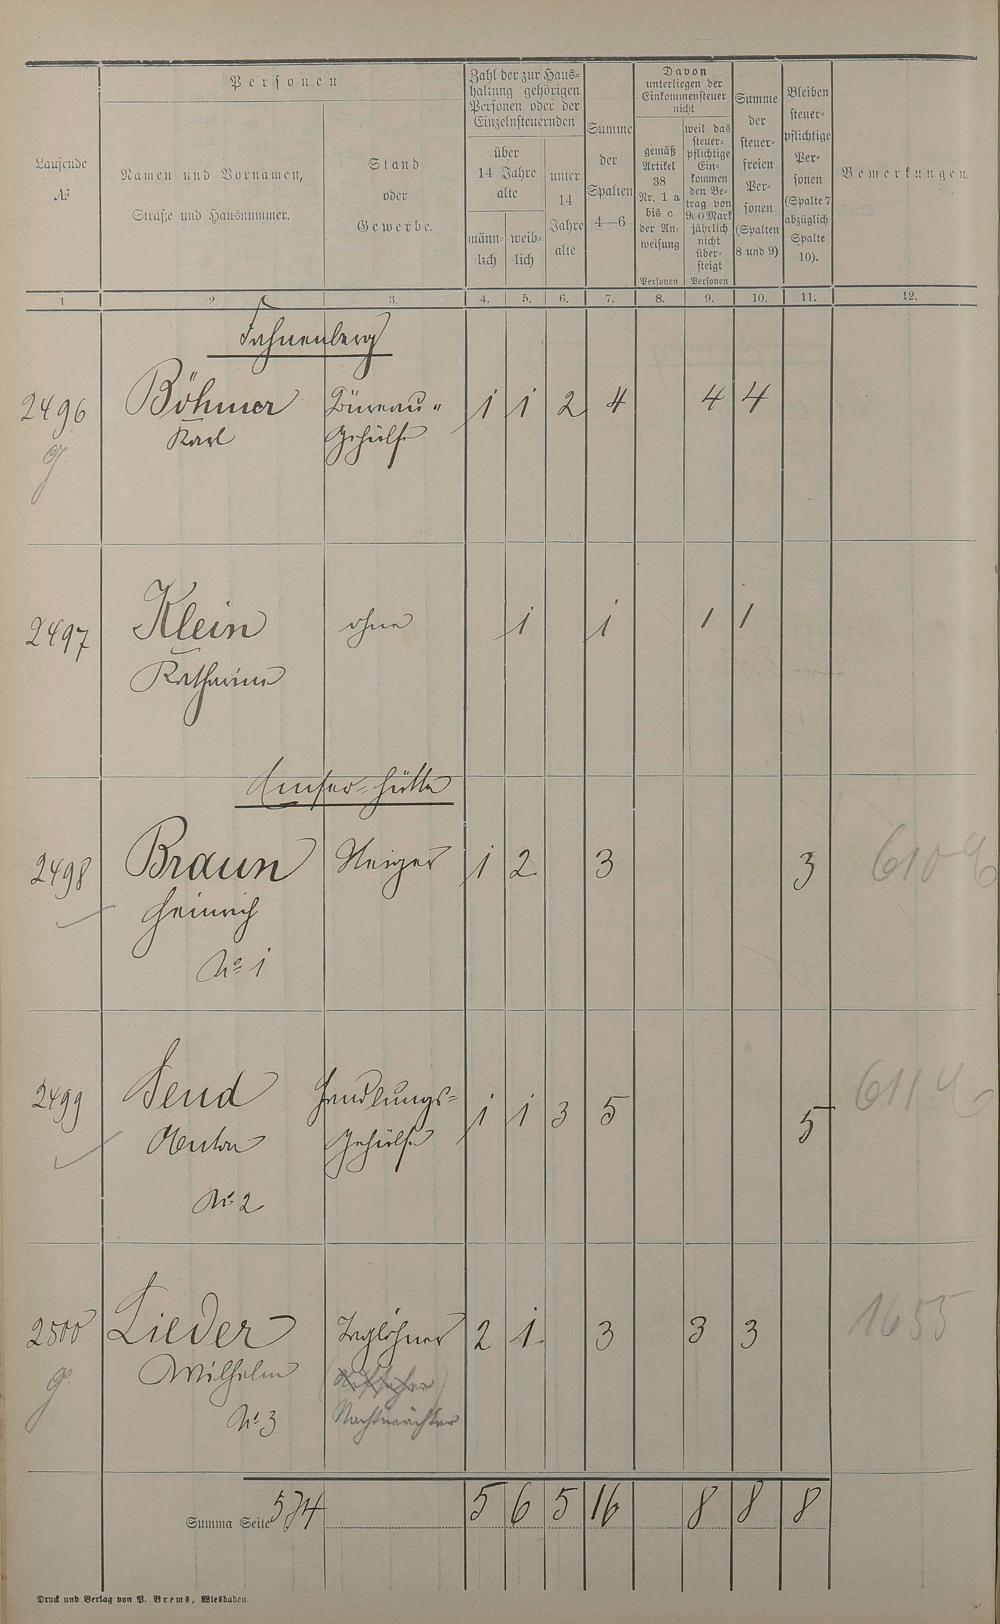 Laufende
№
Personen
Namen und Vornamen,
Straße und Hausnummer.
Stand
oder
Gewerbe.
Zahl der zur Haus-
haltung gehörigen
Personen oder der
Einzelnsteuernden
über
14 Jahre
alte
männ-
lich
weib-
lich
unter
14
Jahre
alte
Summe
der
Spalten
4—6
Davon
unterliegen der
Einkommensteuer
nicht
gemäß
Artikel
38
Nr. 1 a
bis c
der An-
weisung
Personen
weil das
steuer-
pflichtige
Ein-
kommen
den Be-
trag von
900 Mark
jährlich
nicht
über-
steigt
Personen
Summe
der
steuer-
freien
Per-
sonen
(Spalten
8 und 9)
Bleiben
steuer-
pflichtige
Per-
sonen
(Spalte 7
abzüglich
Spalte
10).
Bemerkungen.
1 2. 3. 4. 5. 6. 7. 8. 9. 10. 11. 12.
Fahnenberg
2496 Böhmer Büreau- 1 1 2 4 4 4
g. Karl Gehülfe
2497 Klein ohne 1 1 1 1
Katharine
Emser-Hütte
2498 Braun Steiger 1 2 3 3 610
Heinrich
No 1
2499 Send Handlungs- 1 1 3 5 5 611
Anton Gehülfe
No 2
2500 Lieder Taglöhner 2 1 3 3 3 1655
g. Wilhelm
No 3 Nachtwächter
Summa Seite 574 5 6 5 16 8 8 8
Druck und Verlag von P. Brems, Wiesbaden.